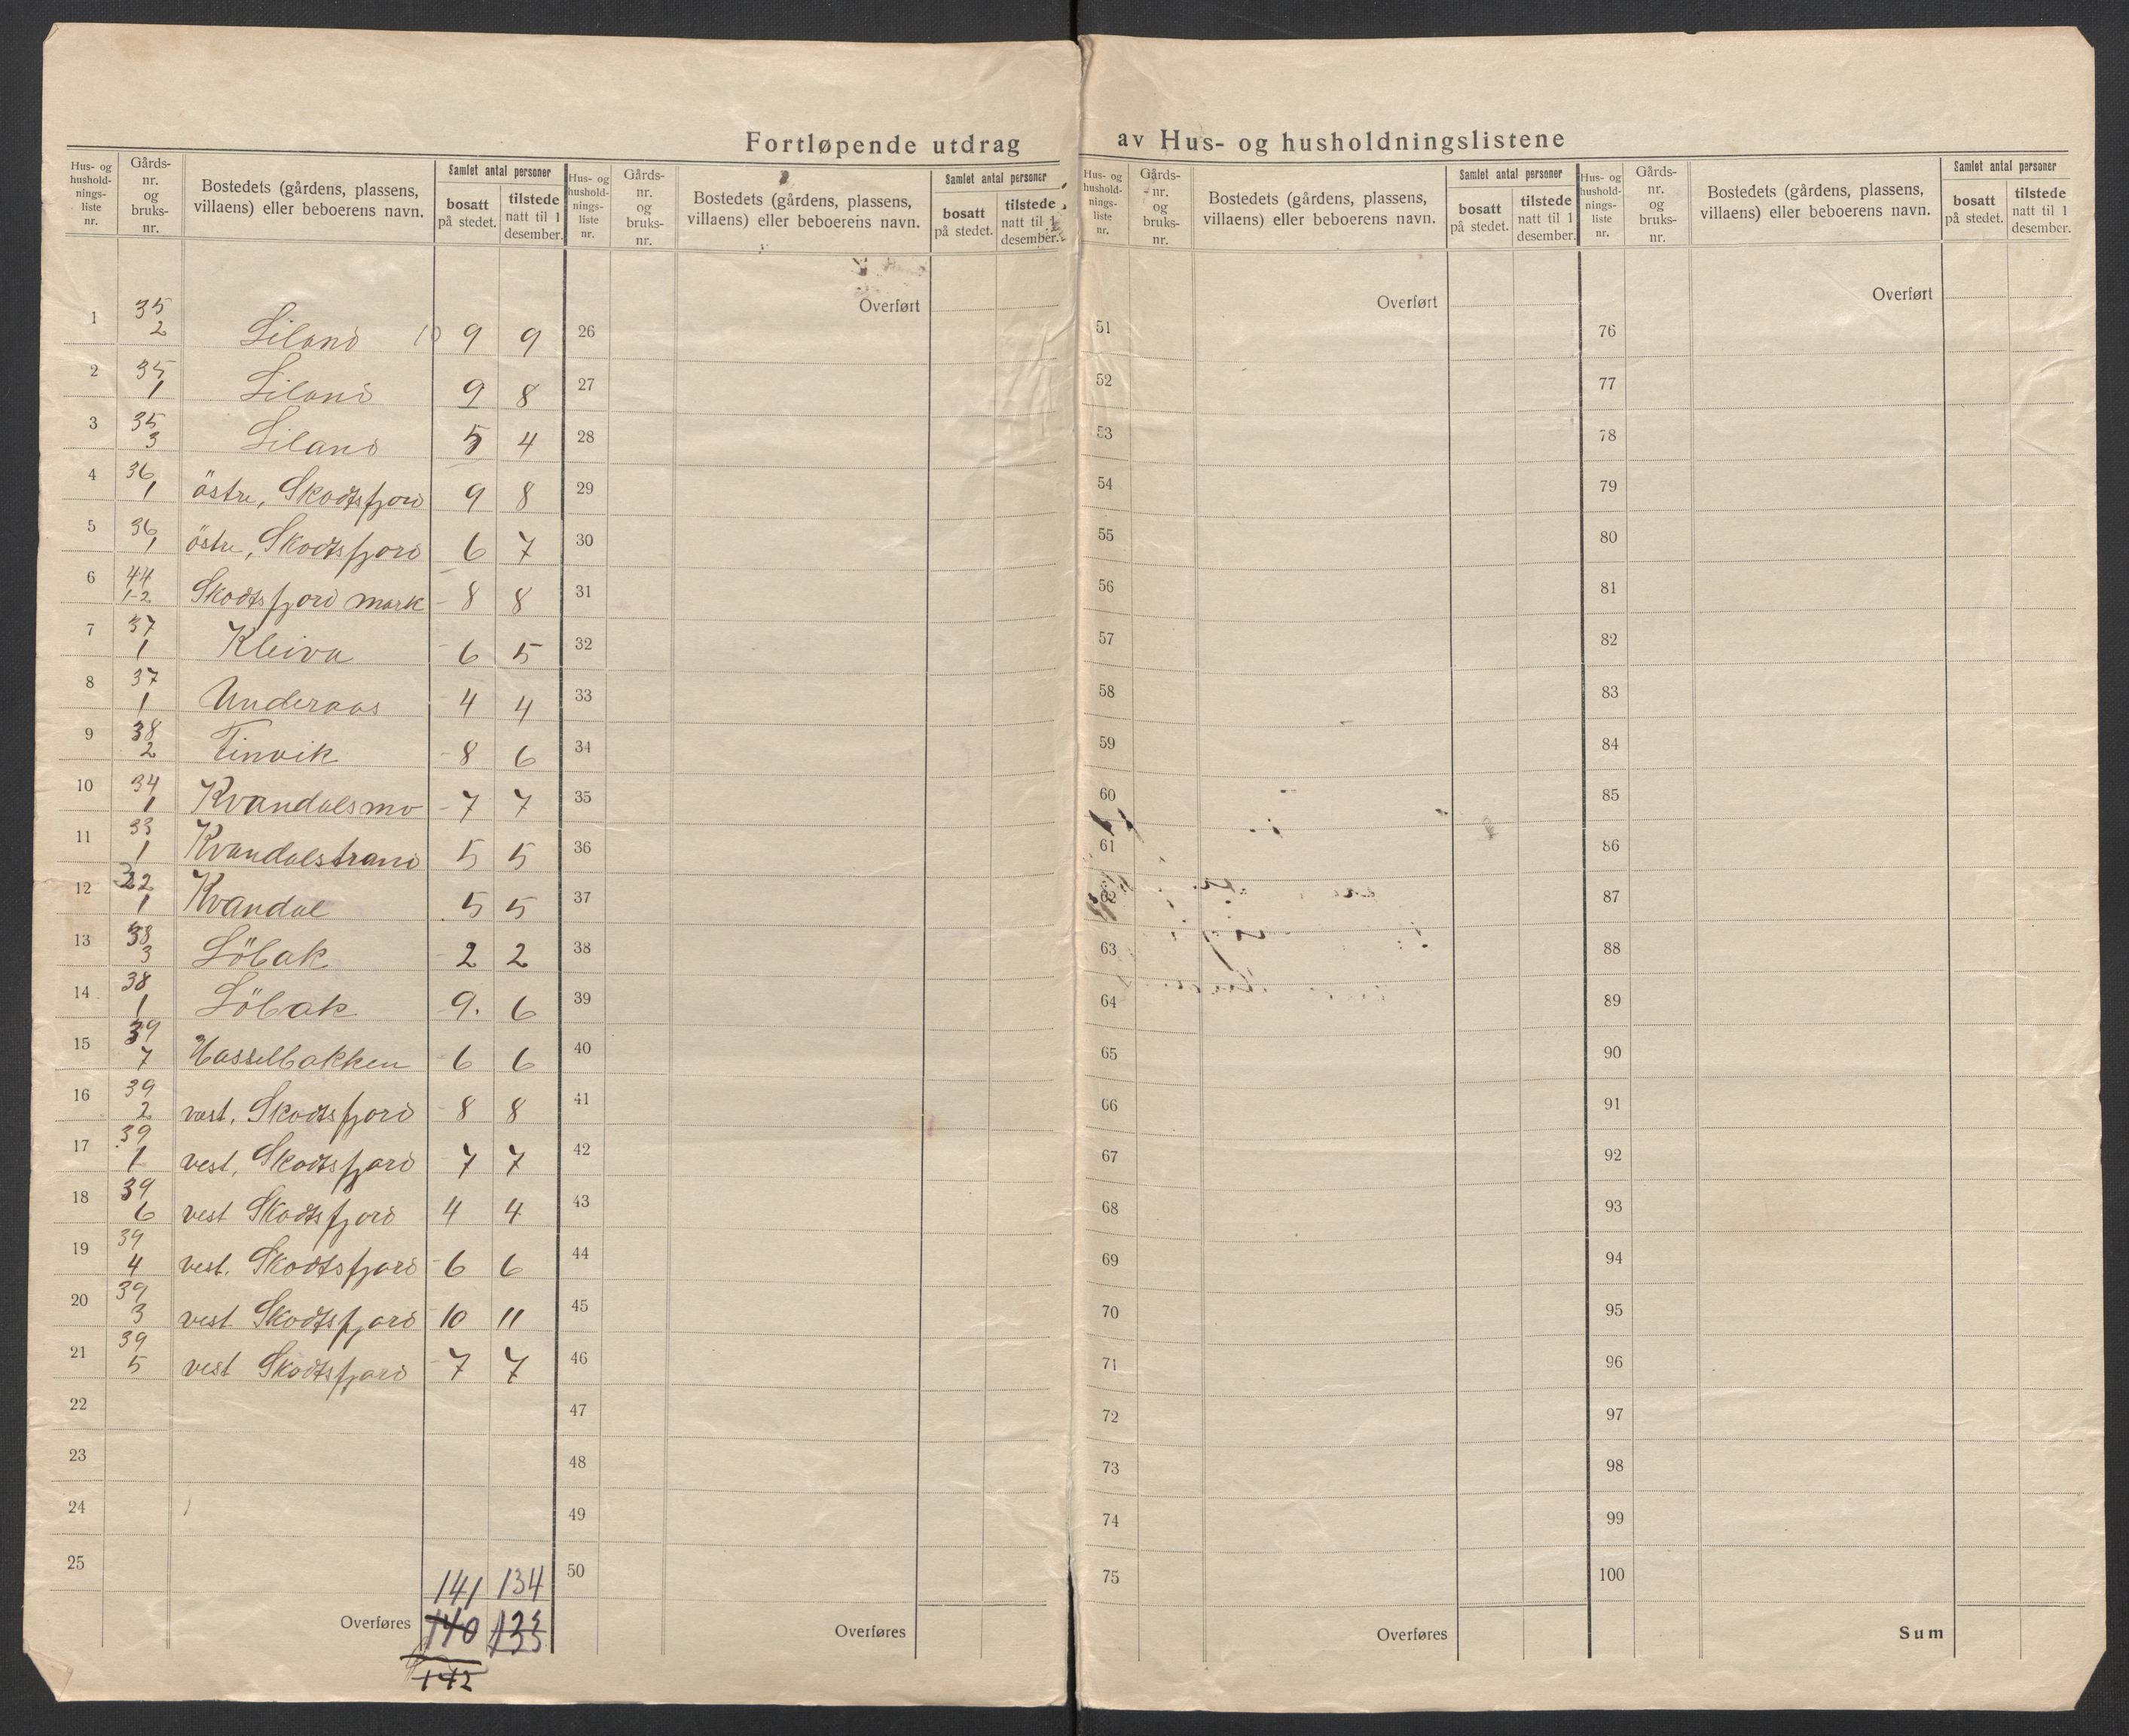 Fortløpende utdrag av Hus- og husholdningslistene
Hus- og hushold-nings-liste nr. | Gårds-nr. og bruks-nr. | Bostedets (gårdens, plassens, villaens) eller beboerens navn. | Samlet antal personer | bosatt på stedet. | tilstede natt til 1 desember.
1 | 35 2 | Liland 10 | 9 | 9
2 | 35 1 | Liland | 9 | 8
3 | 35 3 | Liland | 5 | 4
4 | 36 1 | östre, Skodtsfjord | 9 | 8
5 | 36 1 | östre, Skodtsfjord | 6 | 7
6 | 44 1-2 | Skodtsfjord mark | 8 | 8
7 | 37 1 | Kleiva | 6 | 5
8 | 37 1 | Underaas | 4 | 4
9 | 38 2 | Finvik | 8 | 6
10 | 34 1 | Kvandalsmo | 7 | 7
11 | 33 1 | Kvandalstrand | 5 | 5
12 | 32 1 | Kvandal | 5 | 5
13 | 38 3 | Löbak | 2 | 2
14 | 38 1 | Löbak | 9. | 6
15 | 39 7 | Hasselbakken | 6 | 6
16 | 39 2 | vest, Skodtsfjord | 8 | 8
17 | 39 1 | vest, Skodtsfjord | 7 | 7
18 | 39 6 | vest Skodtsfjord | 4 | 4
19 | 39 4 | vest. Skodtsfjord | 6 | 6
20 | 39 3 | vest. Skodtsfjord | 10 | 11
21 | 39 5 | vest Skodtsfjord | 7 | 7
22
23
24
25
141 | 134
Overføres | 140
142
Hus- og hushold-nings-liste nr. | Gårds-nr. og bruks-nr. | Bostedets (gårdens, plassens, villaens) eller beboerens navn. | Samlet antal personer | bosatt på stedet. | tilstede natt til 1 desember.
Overført
26
27
28
29
30
31
32
33
34
35
36
37
38
39
40
41
42
43
44
45
46
47
48
49
50
Overføres
Hus- og hushold-nings-liste nr. | Gårds-nr. og bruks-nr. | Bostedets (gårdens, plassens, villaens) eller beboerens navn. | Samlet antal personer | bosatt på stedet. | tilstede natt til 1 desember.
Overført
51
52
53
54
55
56
57
58
59
60
61
62
63
64
65
66
67
68
69
70
71
72
73
74
75
Overføres
Hus- og hushold-nings-liste nr. | Gårds-nr. og bruks-nr. | Bostedets (gårdens, plassens, villaens) eller beboerens navn. | Samlet antal personer | bosatt på stedet. | tilstede natt til 1 desember.
Overført
76
77
78
79
80
81
82
83
84
85
86
87
88
89
90
91
92
93
94
95
96
97
98
99
100
Sum